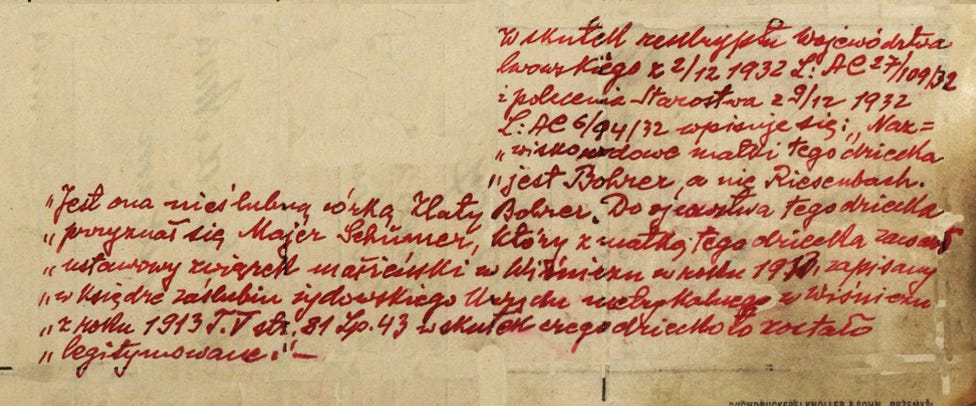 Wskutek reskryptu Województwa
lwowskiego z 2/12 1932 L: AC 27/109/32
i polecenia Starostwa z 9/12 1932
L: AC 6/94/32 wpisuje się: „Naz=
„wisko rodowe matki tego dziecka
„jest Bohrer, a nie Riesenbach.
„Jest ona nieślubną córką Złaty Bohrer. Do ojcostwa tego dziecka
„przyznał się Majer Schümer, który z matką tego dziecka zawarł
„ustawowy związek małżeński w Wiśniczu w roku zapisany
„w księdze zaślubin żydowskiego Urzędu metrykalnego w Wiśniczu
„z roku 1913 T. V str. 81 Lp. 43 wskutek czego dziecko to zostało
„legitymowane." —
BUCHDRUCKEREI KNOLLER & SOHN, PRZEMYŚL